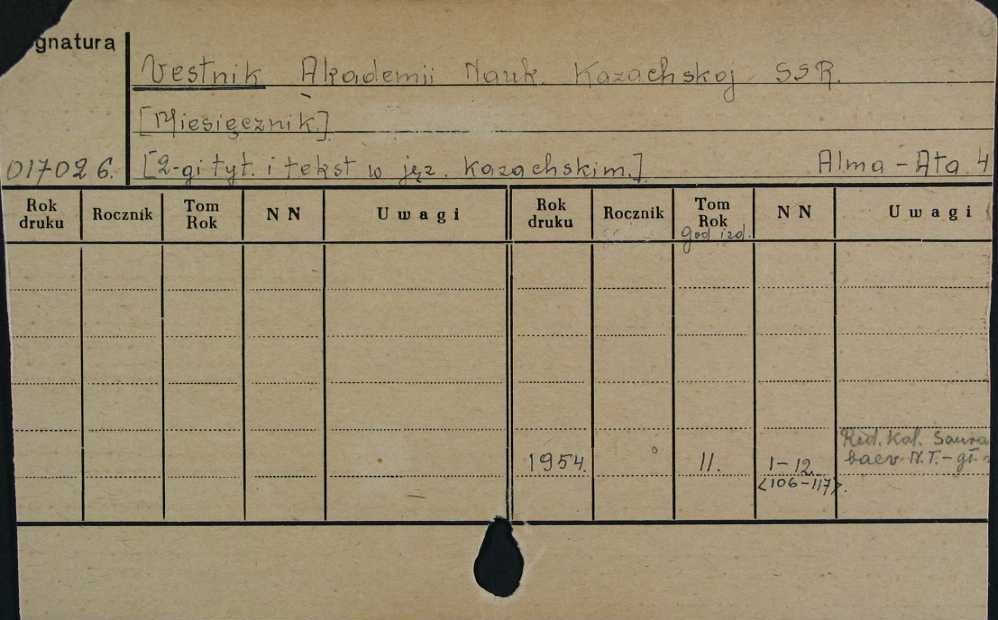 gnatura
Vestnik Akademii Nauk Kazachskoj SSR.
[Miesięcznik.]
017026. [2-gi tyt. i tekst w jęz. kazachskim.] Alma-Ata. 4
Rok druku Rocznik Tom Rok NN Uwagi Rok druku Rocznik Tom Rok NN Uwagi
god izd.
Red. Kol. Saura
1954. 11. 1-12. baev N.T.-gł.
<106-117>.